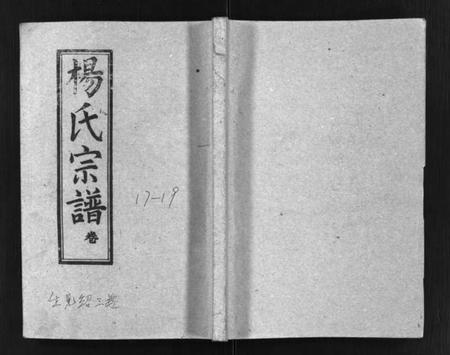 楊氏宗譜
卷
17-19